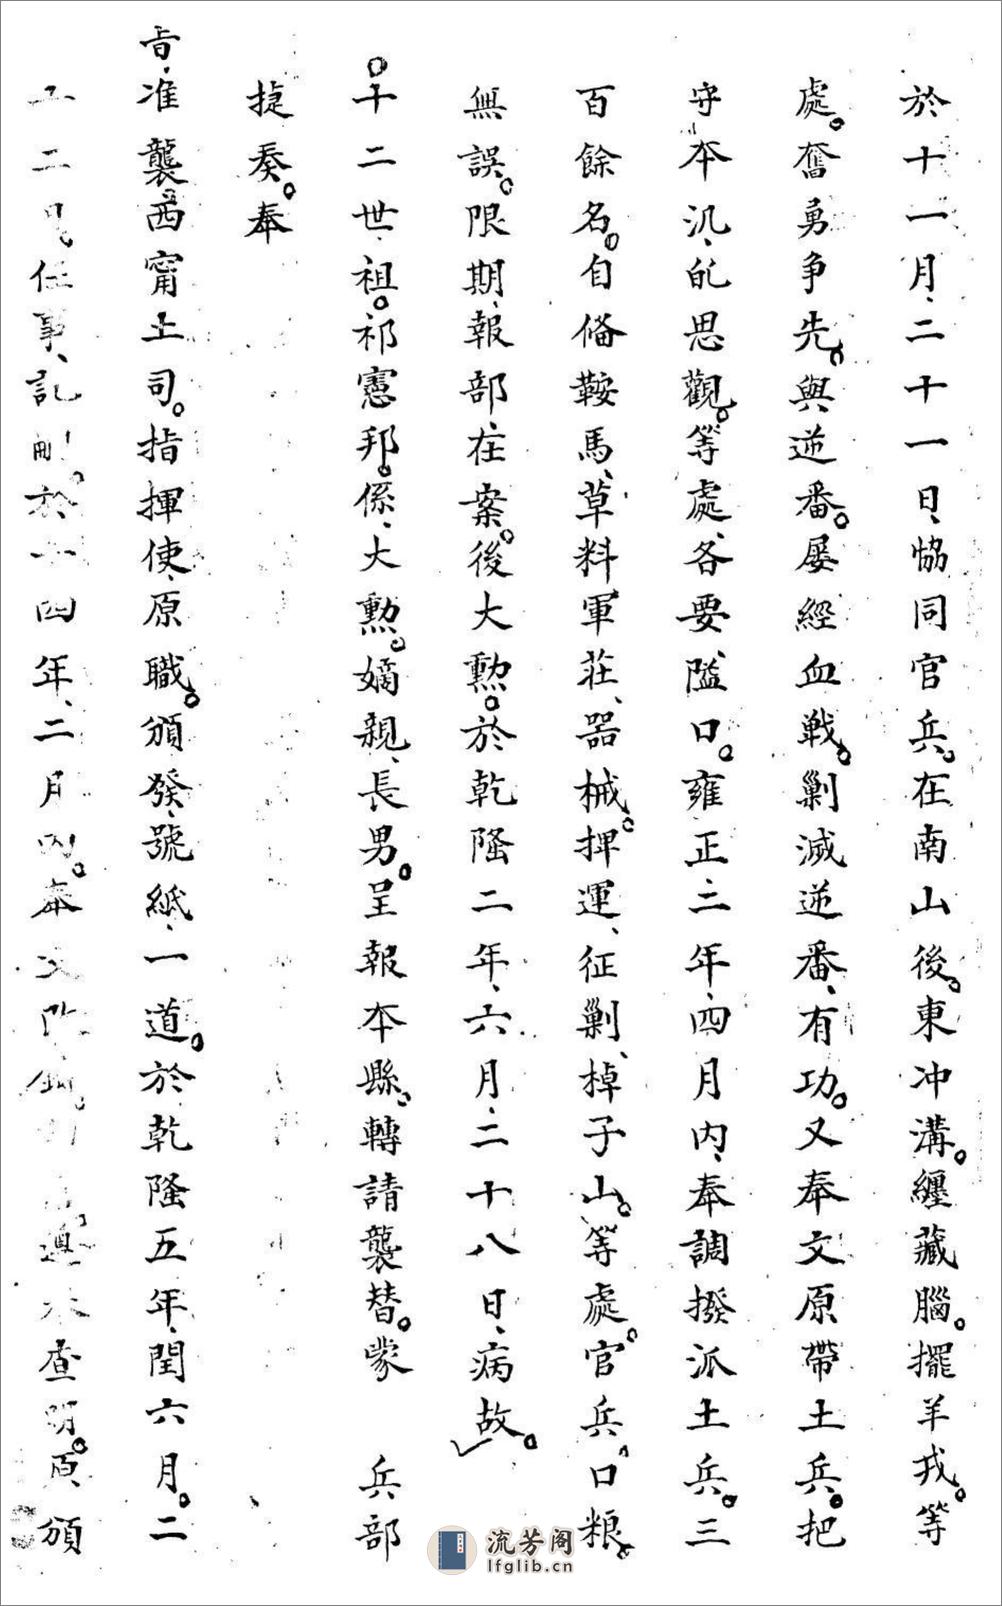 於十一月、二十一日、恊同官兵。在南山後。東冲溝。纏藏腦。擺羊戎。等
處。奮勇争先。與逆番。屡經血戦。剿滅逆番、有功。又奉文原帶土兵。把
守本汛、的思觀。等處、各要、隘口。雍正、二年、四月内、奉調撥派土兵。三
百餘名。自俻鞍馬、草料軍莊、器械。押運、征剿、棹子山。等處。官兵、口粮。
無誤。限期、報部、在案。後大勲。於乾隆二年、六月、二十八日、病故。
十二世、祖。祁憲邦。係、大勲。嫡親、長男。呈報本縣、轉請襲替。蒙 兵部
㨗奏。奉
旨、准襲、西甯土司。指揮使、原職。頒發、號紙、一道。於乾隆五年、閏六月。二
二月 任事、記 於十四年、二月内。奉文 查明。原、頒
流芳阁
lfglib.cn